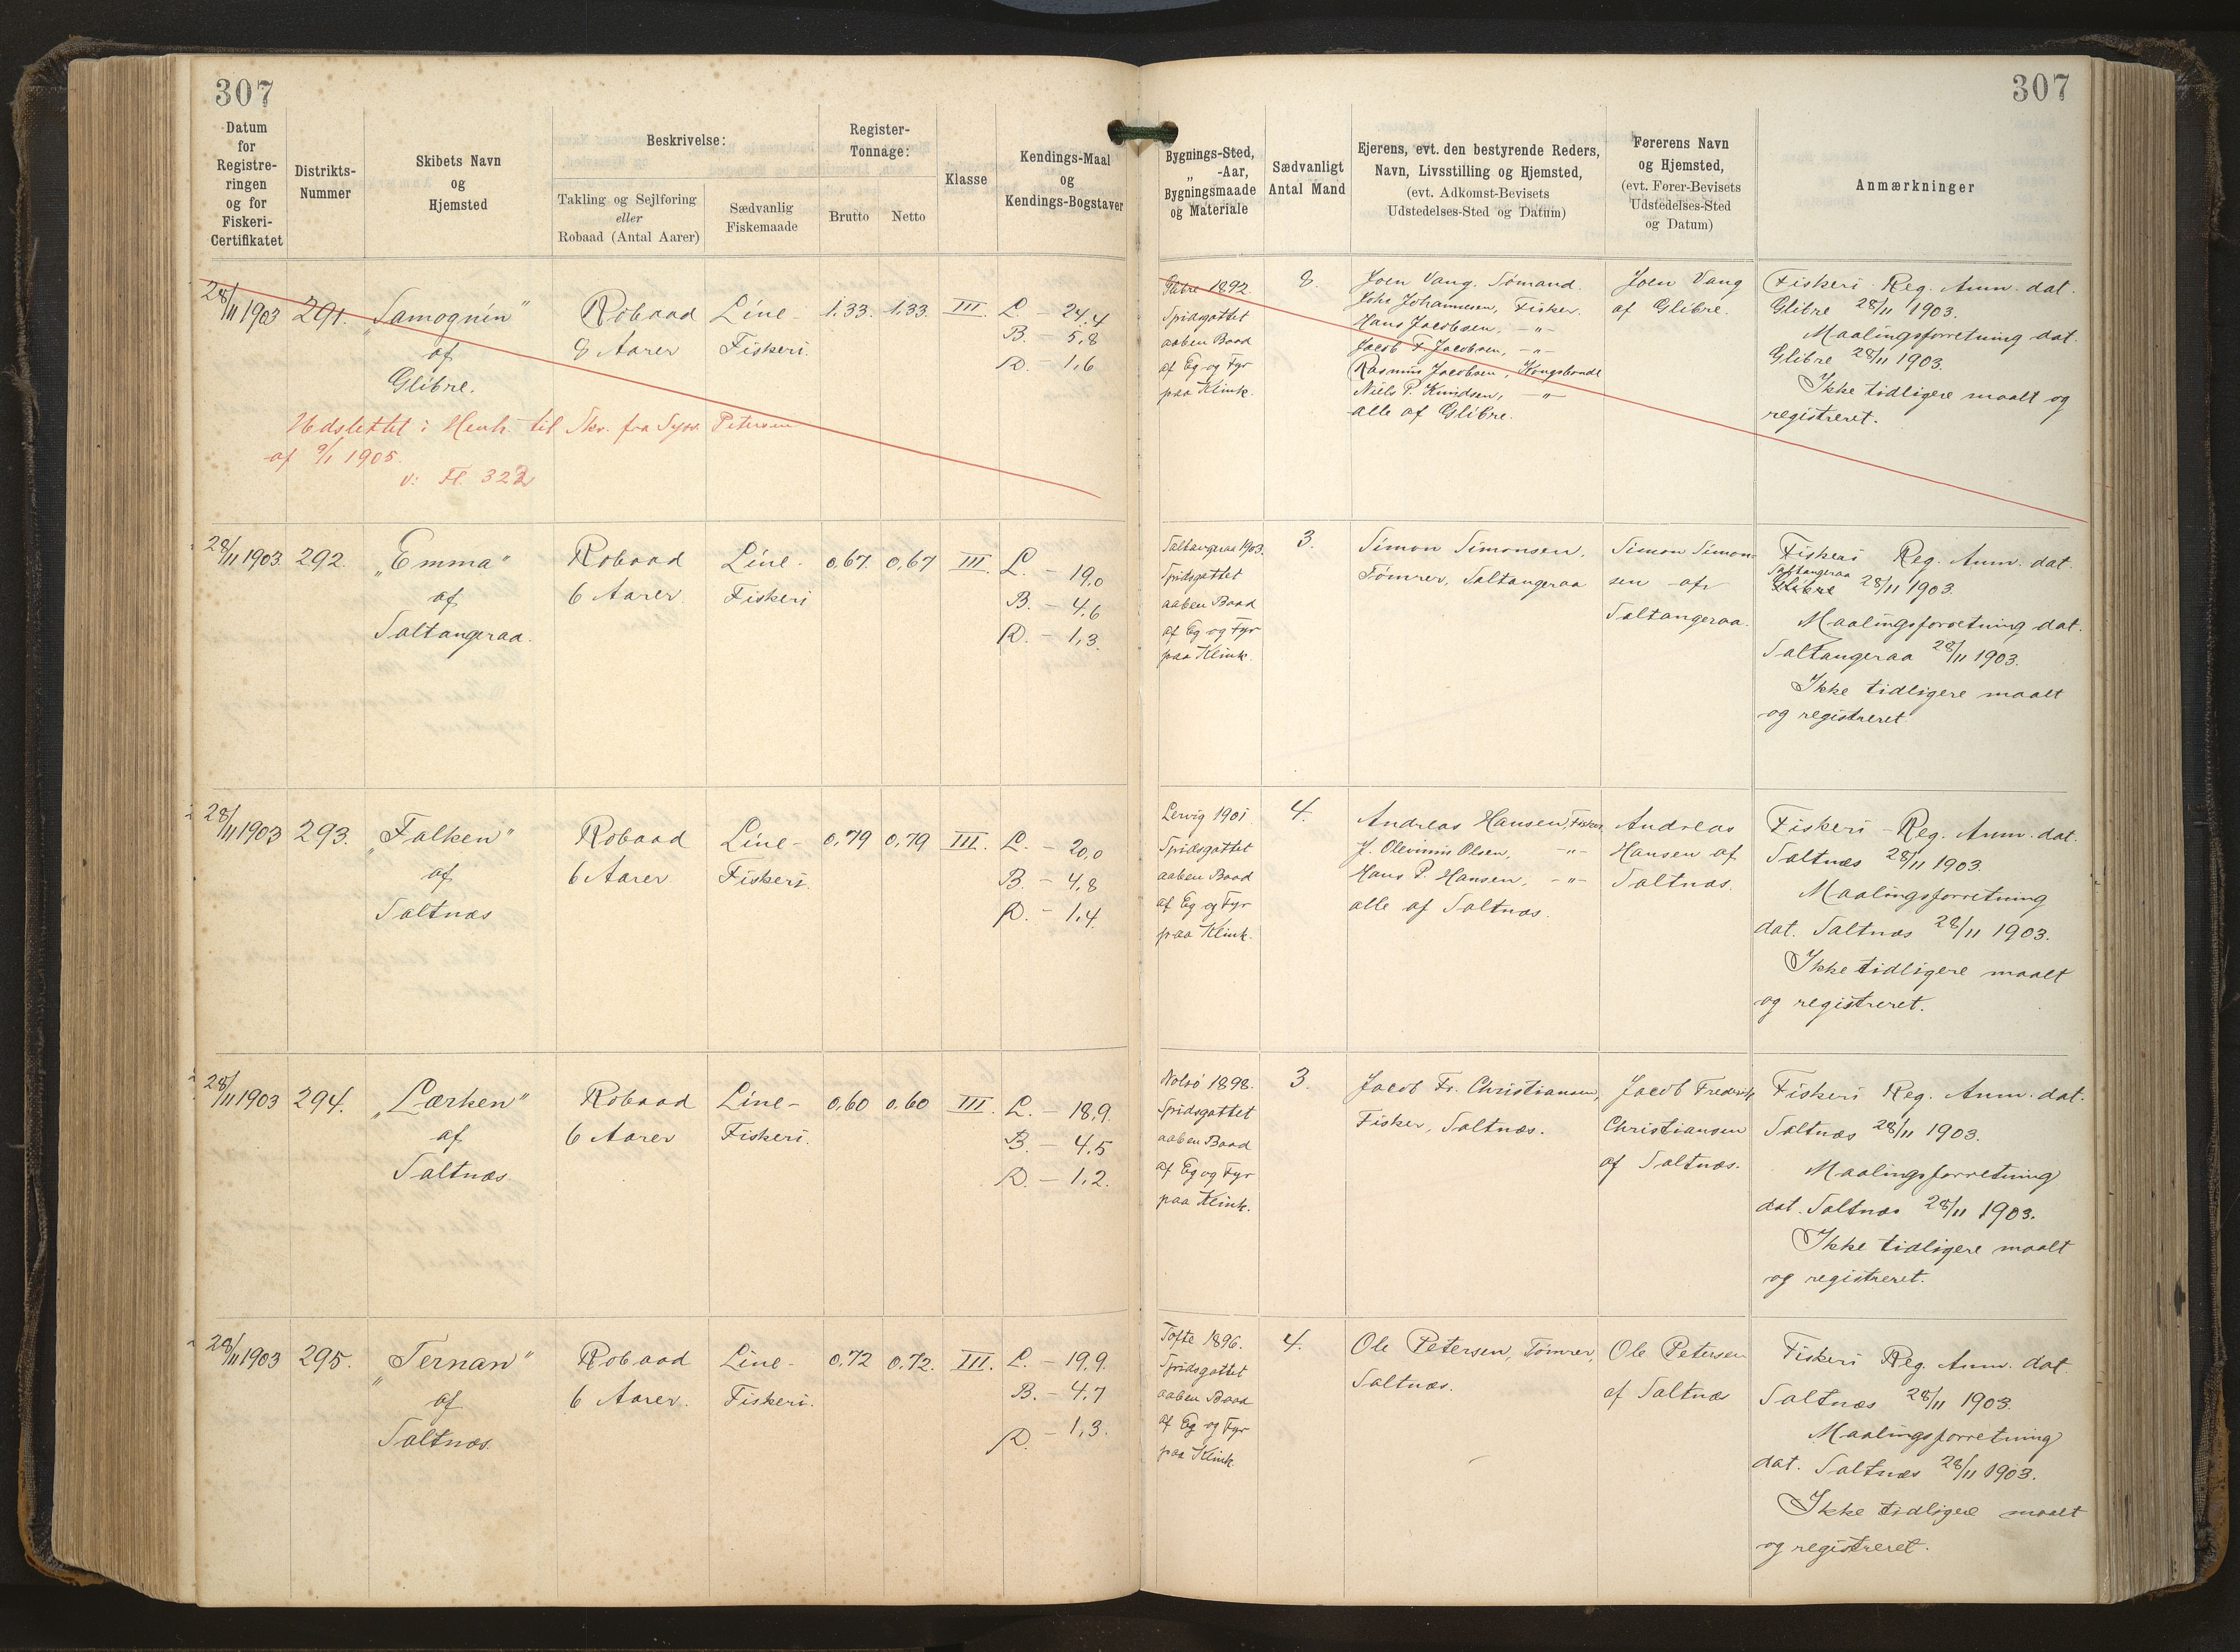 307
307
Datum
for
Registre-
ringen
og for
Fiskeri-
Certifikatet
Distrikts-
Nummer
Skibets Navn
og
Hjemsted
Beskrivelse:
Takling og Sejlføring
eller
Robaad (Antal Aarer)
Sædvanlig
Fiskemaade
Register-
Tonnage:
Brutto
Netto
Klasse
Kendings-Maal
og
Kendings-Bogstaver
Bygnings-Sted,
„ -Aar,
Bygningsmaade
og Materiale
Sædvanligt
Antal Mand
Ejerens, evt. den bestyrende Reders,
Navn, Livsstilling og Hjemsted,
(evt. Adkomst-Bevisets
Udstedelses-Sted og Datum)
Førerens Navn
og Hjemsted,
(evt. Fører-Bevisets
Udstedelses-Sted
og Datum)
Anmærkninger
28/11 1903
291.
„Samognin"
af
Glibre.
Robaad
8 Aarer
Line-
Fiskeri.
1,33.
1,33.
III.
L. - 24,4
B. - 5,8
D. - 1,6
1892.
Spidsgattet
aaben Baad
af Eg og Fyr
paa Klink.
8.
Joen Vang, Sømand.
Johs Johannesen, Fisker.
Hans Jacobsen, -"-
Jacob F. Jacobsen, -"-
Rasmus Jacobsen, Kongsbonde
Niels P. Knudsen, -"-
alle af Glibre.
Joen Vang
af Glibre.
Fiskeri Reg. Anm. dat.
Glibre 28/11 1903.
Maalingsforretning dat.
Glibre 28/11 1903.
Ikke tidligere maalt og
registreret.
Udslettet i Henh. til Skr. fra Petersen
af 9/1 1905.
v: Fl. 322
28/11 1903.
292.
„Emma"
af
Saltangeraa.
Robaad
6 Aarer
Line-
Fiskeri
0,67.
0,67
III.
L. - 19,0
B. - 4,6
D. - 1,3.
Saltangeraa 1903.
Spidsgattet
aaben Baad
af Eg og Fyr
paa Klink.
3.
Simon Simonsen,
Tømrer, Saltangeraa
Simon Simon-
sen af
Saltangeraa.
Fiskeri Reg. Anm. dat.
Saltangeraa
Glibre 28/11 1903.
Maalingsforretning dat.
Saltangeraa 28/11 1903.
Ikke tidligere maalt
og registreret.
28/11 1903
293.
„Falken"
af
Saltnæs
Robaad
6 Aarer
Line-
Fiskeri.
0,79
0,79
III.
L. - 20,0
B. - 4,8
D. - 1,4.
Lervig 1901
Spidsgattet
aaben Baad
af Eg og Fyr
paa Klink.
4.
Andreas Hansen, Fisker,
J. Olevinus Olsen, -"-
Hans P. Hansen, -"-
alle af Saltnæs.
Andreas
Hansen af
Saltnæs.
Fiskeri-Reg. Anm. dat.
Saltnæs 28/11 1903.
Maalingsforretning
dat. Saltnæs 28/11 1903.
Ikke tidligere maalt
og registreret.
28/11 1903
294.
„Lærken"
af
Saltnæs
Robaad
6 Aarer
Line-
Fiskeri.
0,60
0,60
III.
L. - 18,9.
B. - 4,5
D. - 1,2.
Nolsø 1898.
Spidsgattet
aaben Baad
af Eg og Fyr
paa Klink.
3.
Jacob Fr. Christiansen,
Fisker, Saltnæs.
Jacob Frederik
Christiansen
af Saltnæs.
Fiskeri Reg. Anm. dat.
Saltnæs 28/11 1903.
Maalingsforretning
dat. Saltnæs 28/11 1903.
Ikke tidligere maalt
og registreret.
28/11 1903
295.
„Ternan"
af
Saltnæs.
Robaad
6 Aarer.
Line-
Fiskeri.
0,72
0,72.
III.
L. - 19,9.
B. - 4,7
D. - 1,3.
Tofte 1896.
Spidsgattet
aaben Baad
af Eg og Fyr
paa Klink.
4.
Ole Petersen, Tømrer,
Saltnæs.
Ole Petersen
af Saltnæs
Fiskeri Reg. Anm. dat
Saltnæs 28/11 1903.
Maalingsforretning
dat. Saltnæs 28/11 1903.
Ikke tidligere maalt
og registreret.